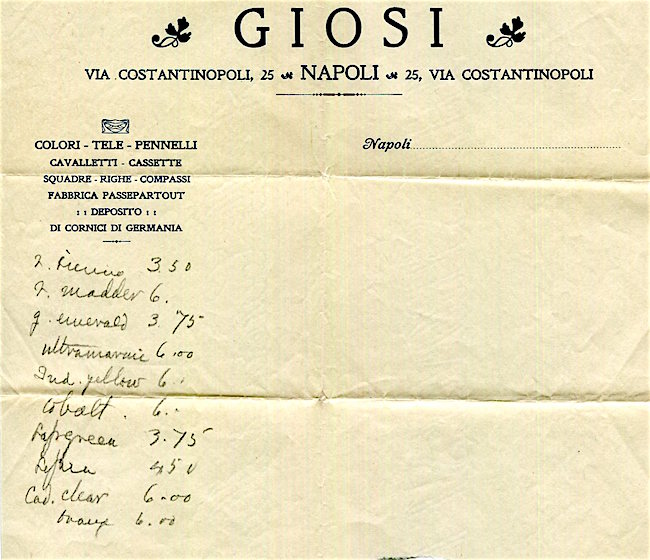 GIOSI
VIA COSTANTINOPOLI, 25 NAPOLI 25, VIA COSTANTINOPOLI
COLORI - TELE - PENNELLI
CAVALLETTI - CASSETTE
SQUADRE - RIGHE - COMPASSI
FABBRICA PASSEPARTOUT
: : DEPOSITO : :
DI CORNICI DI GERMANIA
Napoli
3.50
madder 6.
g. emerald 3.75
ultramarine 6.00
Ind. yellow 6.
Cobalt. 6.
Sapgreen 3.75
Sepia 450
Cad. clear 6.00
6.00